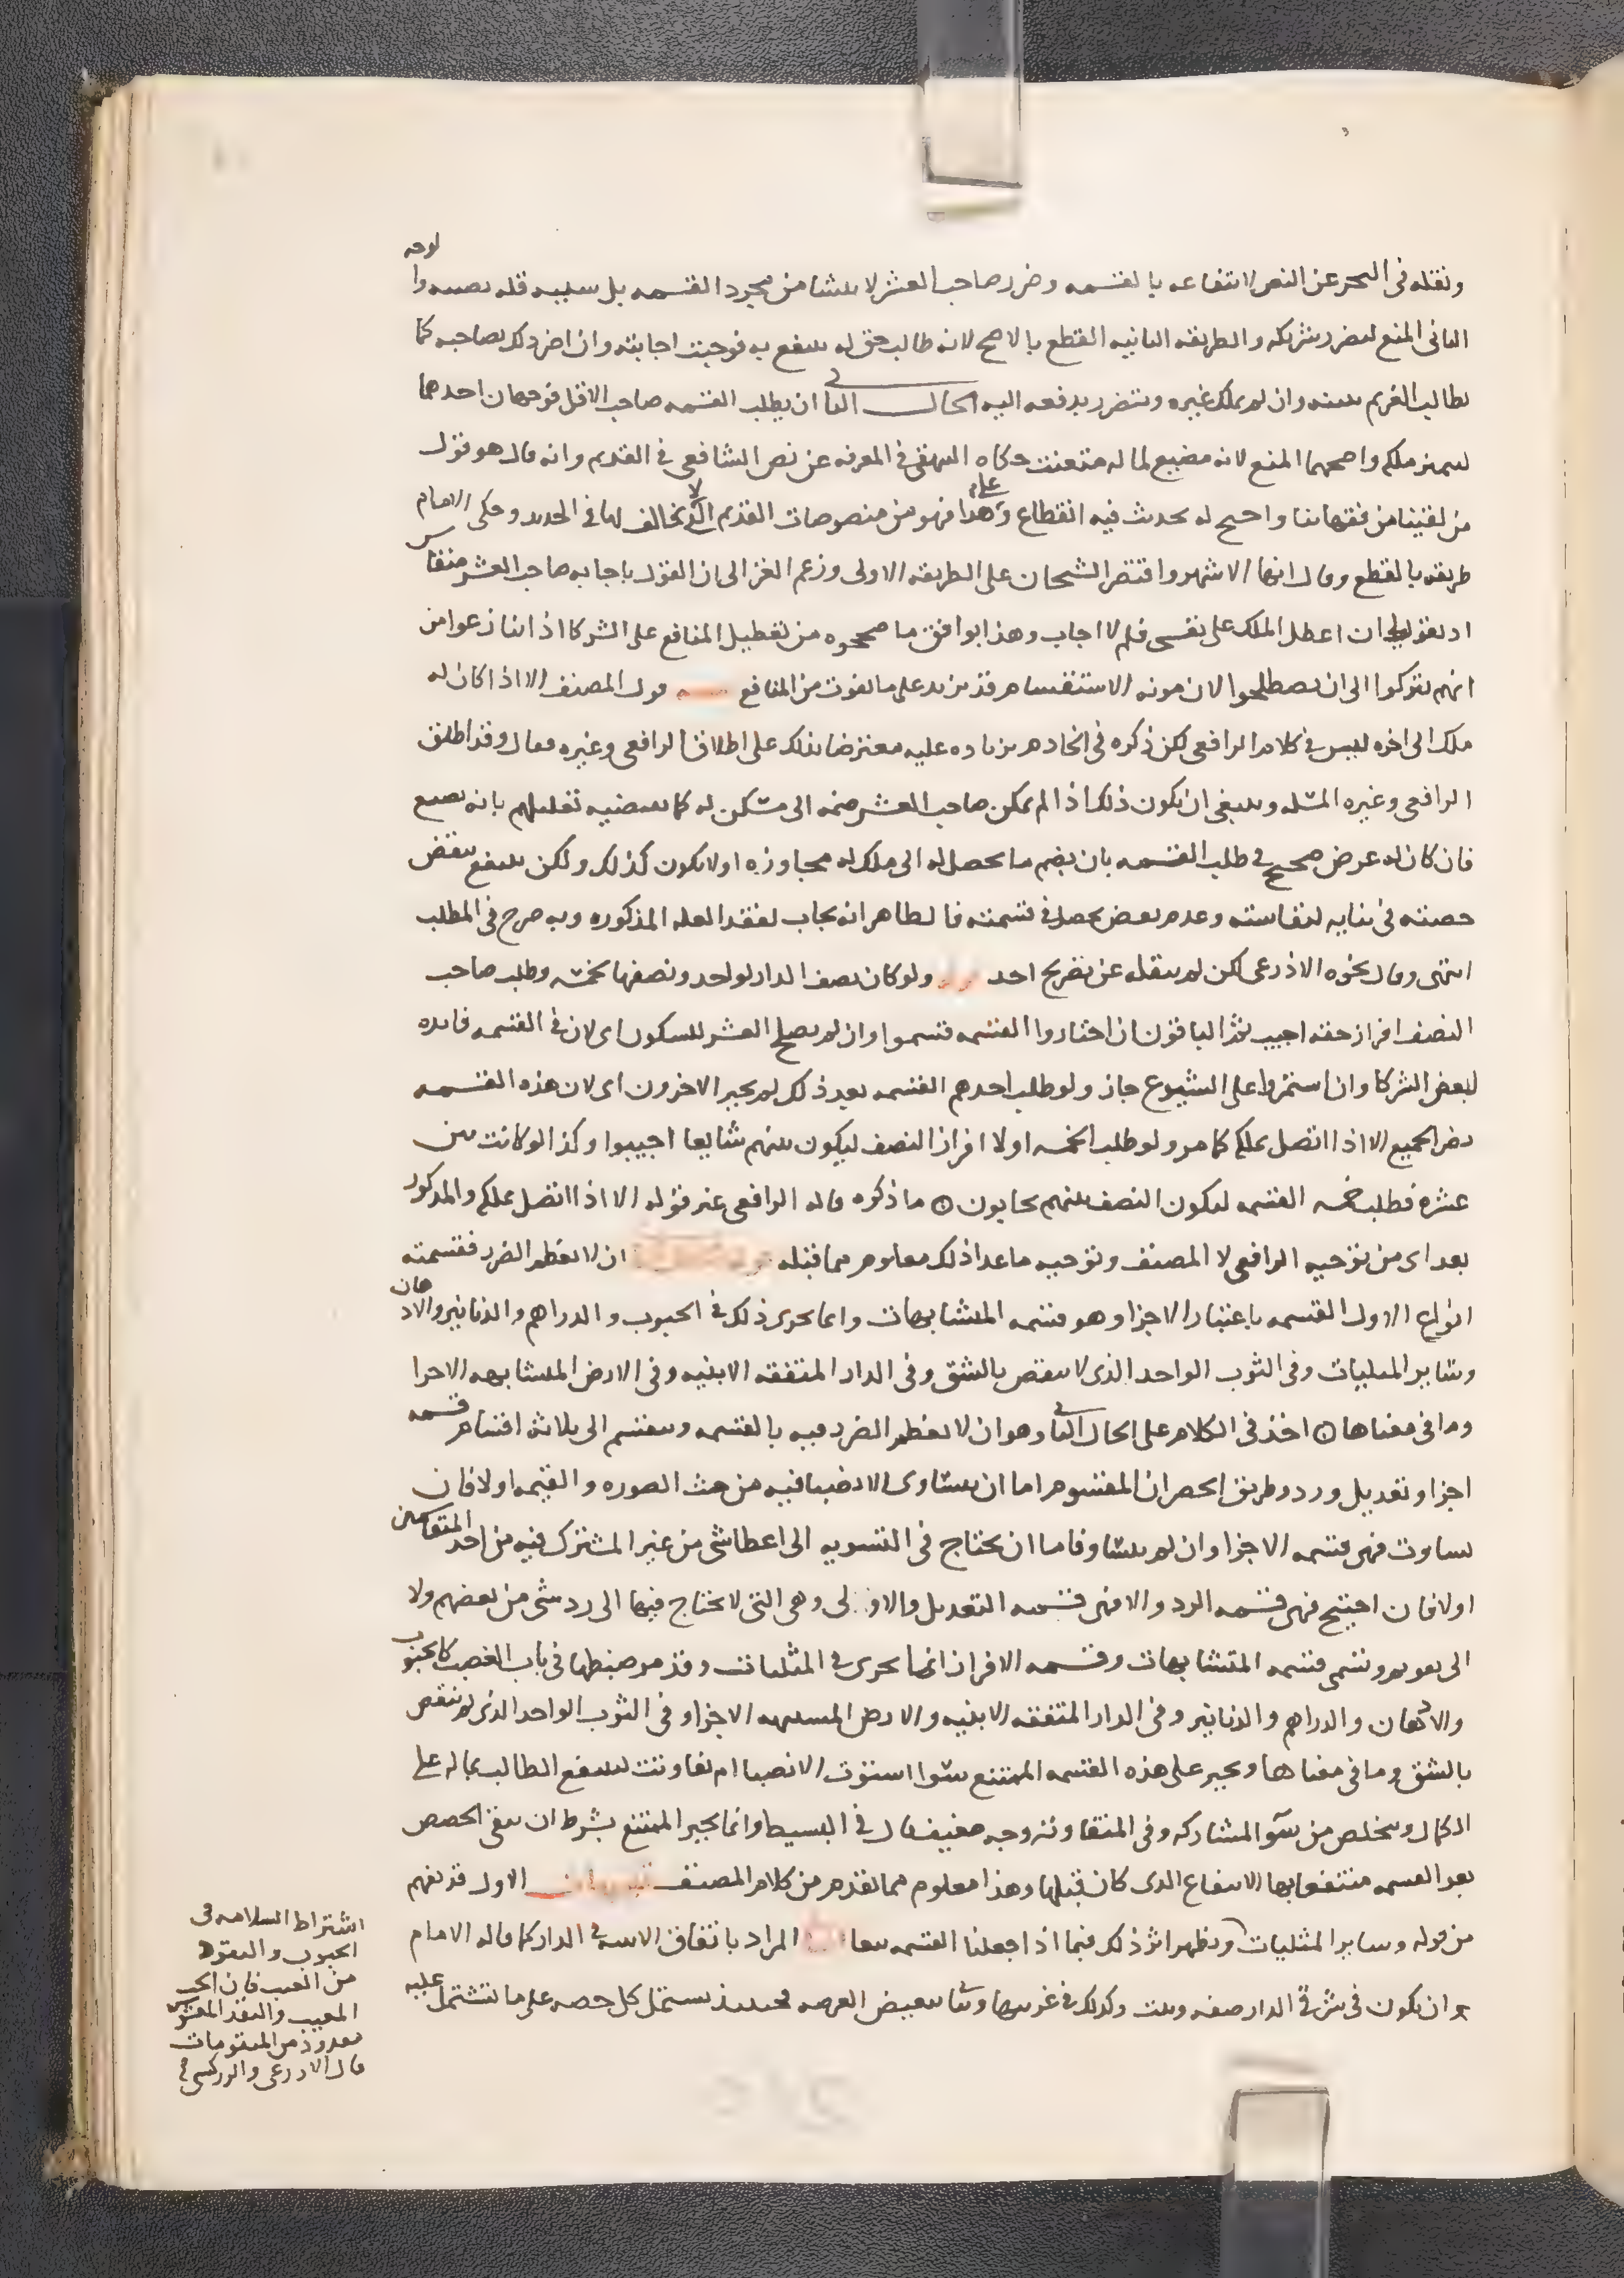 ونقله في البحر عن النص لانتفاعه بالقسمه وضرر صاحب العشر لا ينشا من مجرد القسمه بل سببه قله نصيبه وا لوجه
الثانى المنع لضرر شريكه والطريقه الثانيه القطع بالاصح لانه طالب حق له ينتفع به فوجبت اجابته وان اضر ذلك بصاحبه كما
يطالب الغريم بدينه وان لم يملك غيره ويتضرر بدفعه اليه الحال الثانى ان يطلب القسمه صاحب الاقل فوجهان احدهما
ليميز ملكه واصحهما المنع لانه مضيع لماله متعنت حكاه البيهقى في المعرفه عن نص الشافعى في القديم وانه قال هو قول
من لقينا من فقهائنا واحتج له بحديث فيه انقطاع وعلى هذا فهو من منصوصات القديم التى لا مخالف لها في الجديد وحكى الامام
طريقه بالقطع وقال انها الاشهر واقتصر الشيخان على الطريقه الاولى وزعم الغزالى ان القول باجابه صاحب العشر منقاس
اذ يقول ان اعطل الملك على نفسى فلم لا اجاب وهذا يوافق ما صححوه من تعطيل المنافع على الشركا اذا تنازعوا من
انهم يتركوا الى ان يصطلحوا لان مونه الاستقسام قد تزيد على ما يفوت من المنافع قول المصنف الا اذا كان له
ملك الى اخره ليس في كلام الرافعى لكن ذكره في الخادم بزياده عليه معترضا بذلك على اطلاق الرافعى وغيره فقال وقد اطلق
الرافعى وغيره المسله وينبغى ان يكون ذلك اذا لم يمكن صاحب العشر ضمه الى مسكن له كما يقتضيه تعليلهم بانه يضيع
فان كان له غرض صحيح في طلب القسمه بان يضم ما يحصل له الى ملك له مجاوره او لا يكون كذلك ولكن ينتفع بنقض
حصته في بنايه لنفاسته وعدم نقض يحصل في قسمته فالظاهر انه يجاب لفقد العله المذكوره وبه صرح في المطلب
انتهى وقال نحوه الاذرعى لكن لم ينقله عن تصريح احد ولو كان نصف الدار لواحد ونصفها لخمسه وطلب صاحب
النصف افراز حقه اجيب ثم الباقون ان اختاروا القسمه قسموا وان لم يصلح العشر للسكون اى لان في القسمه فايده
لبعض الشركا وان استمروا على الشيوع جاز ولو طلب احدهم القسمه بعد ذلك لم يجبر الاخرون اى لان هذه القسمه
تضر الجميع الا اذا اتصل بملكه كما مر ولو طلب الخمسه اولا افراز النصف ليكون بينهم شايعا اجيبوا وكذا لو كانت بين
عشره فطلب خمسه القسمه ليكون النصف بينهم يجابون ما ذكره قاله الرافعى غير قوله الا اذا اتصل بملكه والمذكور
بعد اى من توجيه الرافعى لا المصنف وتوجيه ما عدا ذلك معلوم مما قبله ان لا يعظم الضرر فقسمته
انواع الاول القسمه باعتبار الاجزا وهو قسمه المتشابهات وانما يجرى ذلك في الحبوب والدراهم والدنانير والادهان
وساير المثليات وفي الثوب الواحد الذى لا ينقص بالشق وفي الدار المتفقه الابنيه وفي الارض المتشابهه الاجزا
وما في معناها اخذ في الكلام على الحال الثانى وهو ان لا يعظم الضرر فيه بالقسمه وينقسم الى ثلاثه اقسام قسمه
اجزا وتعديل ورد وطريق الحصر ان المقسوم اما ان يتساوى الانصبا فيه من حيث الصوره والقيمه او لا فان
تساوت فهى قسمه الاجزا وان لم يتساو فاما ان يحتاج في التسويه الى اعطا شى من غير المشترك فيه من احد المتقاسمين
او لا فان احتيج فهى قسمه الرد والا فهى قسمه التعديل والاولى وهى التى لا يحتاج فيها الى رد شى من بعضهم ولا
الى تقويم وتسمى قسمه المتشابهات وقسمه الافراز انما يجرى في المثليات وقد مر ضبطها في باب الغصب كالحبوب
والادهان والدراهم والدنانير وفي الدار المتفقه الابنيه والارض المتشابهه الاجزا وفي الثوب الواحد الذى لم ينقص
بالشق وما في معناها ويجبر على هذه القسمه الممتنع سوا استوت الانصبا ام تفاوتت لينتفع الطالب بماله على
الكمال ويتخلص من سو المشاركه وفي المتفاوته وجه ضعيف قال في البسيط وانما يجبر الممتنع بشرط ان تبقى الحصص
بعد القسمه منتفعا بها الانتفاع الذى كان قبلها وهذا معلوم مما تقدم من كلام المصنف الاول قد يفهم
من قوله وساير المثليات ويظهر اثر ذلك فيما اذا جعلنا القسمه بيعا المراد باتفاق الابنيه في الدار كما قاله الامام
ان يكون في شرقى الدار صفه وبيت وكذلك في غربيها ويتاتى تبعيض العرصه فحينئذ يشتمل كل حصه على ما تشتمل عليه
اشتراط السلامه في
الحبوب والنقود
من العيب فان الحب
المعيب والنقد المغشوش
معدود من المتقومات
قال الاذرعى والزركشى